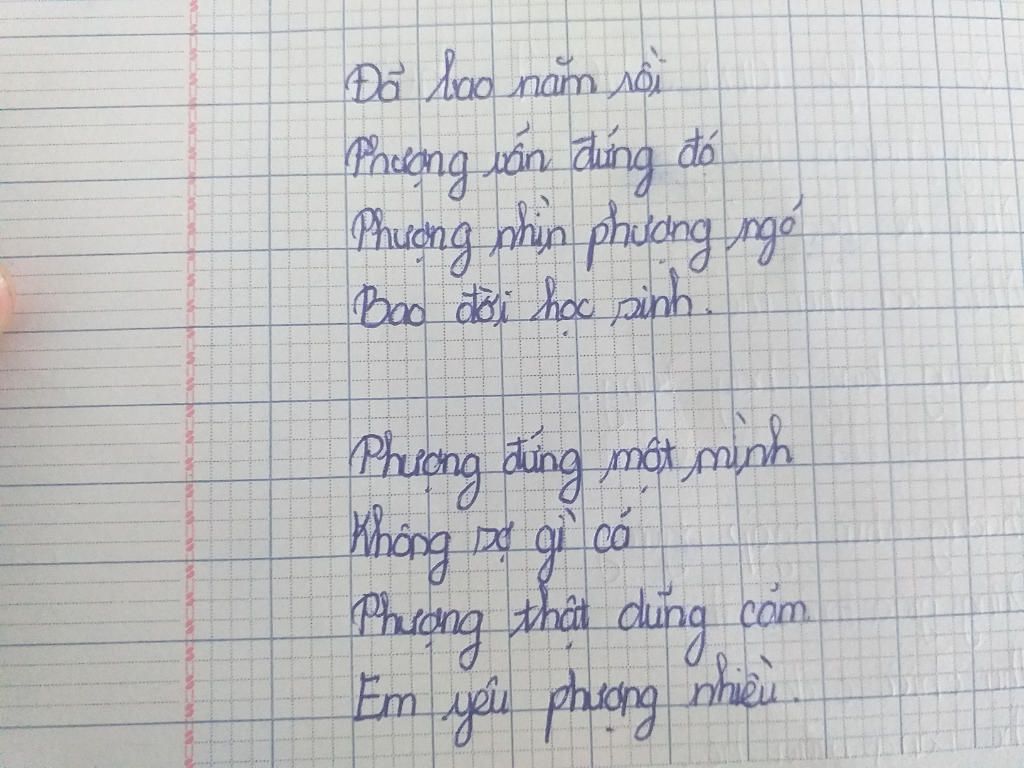 Đã bao năm rồi
Phượng vẫn đứng đó
Phượng nhìn phượng ngó
Bao đời học sinh.
Phượng đứng một mình
Không sợ gì cả
Phượng thật dũng cảm
Em yêu phượng nhiều.